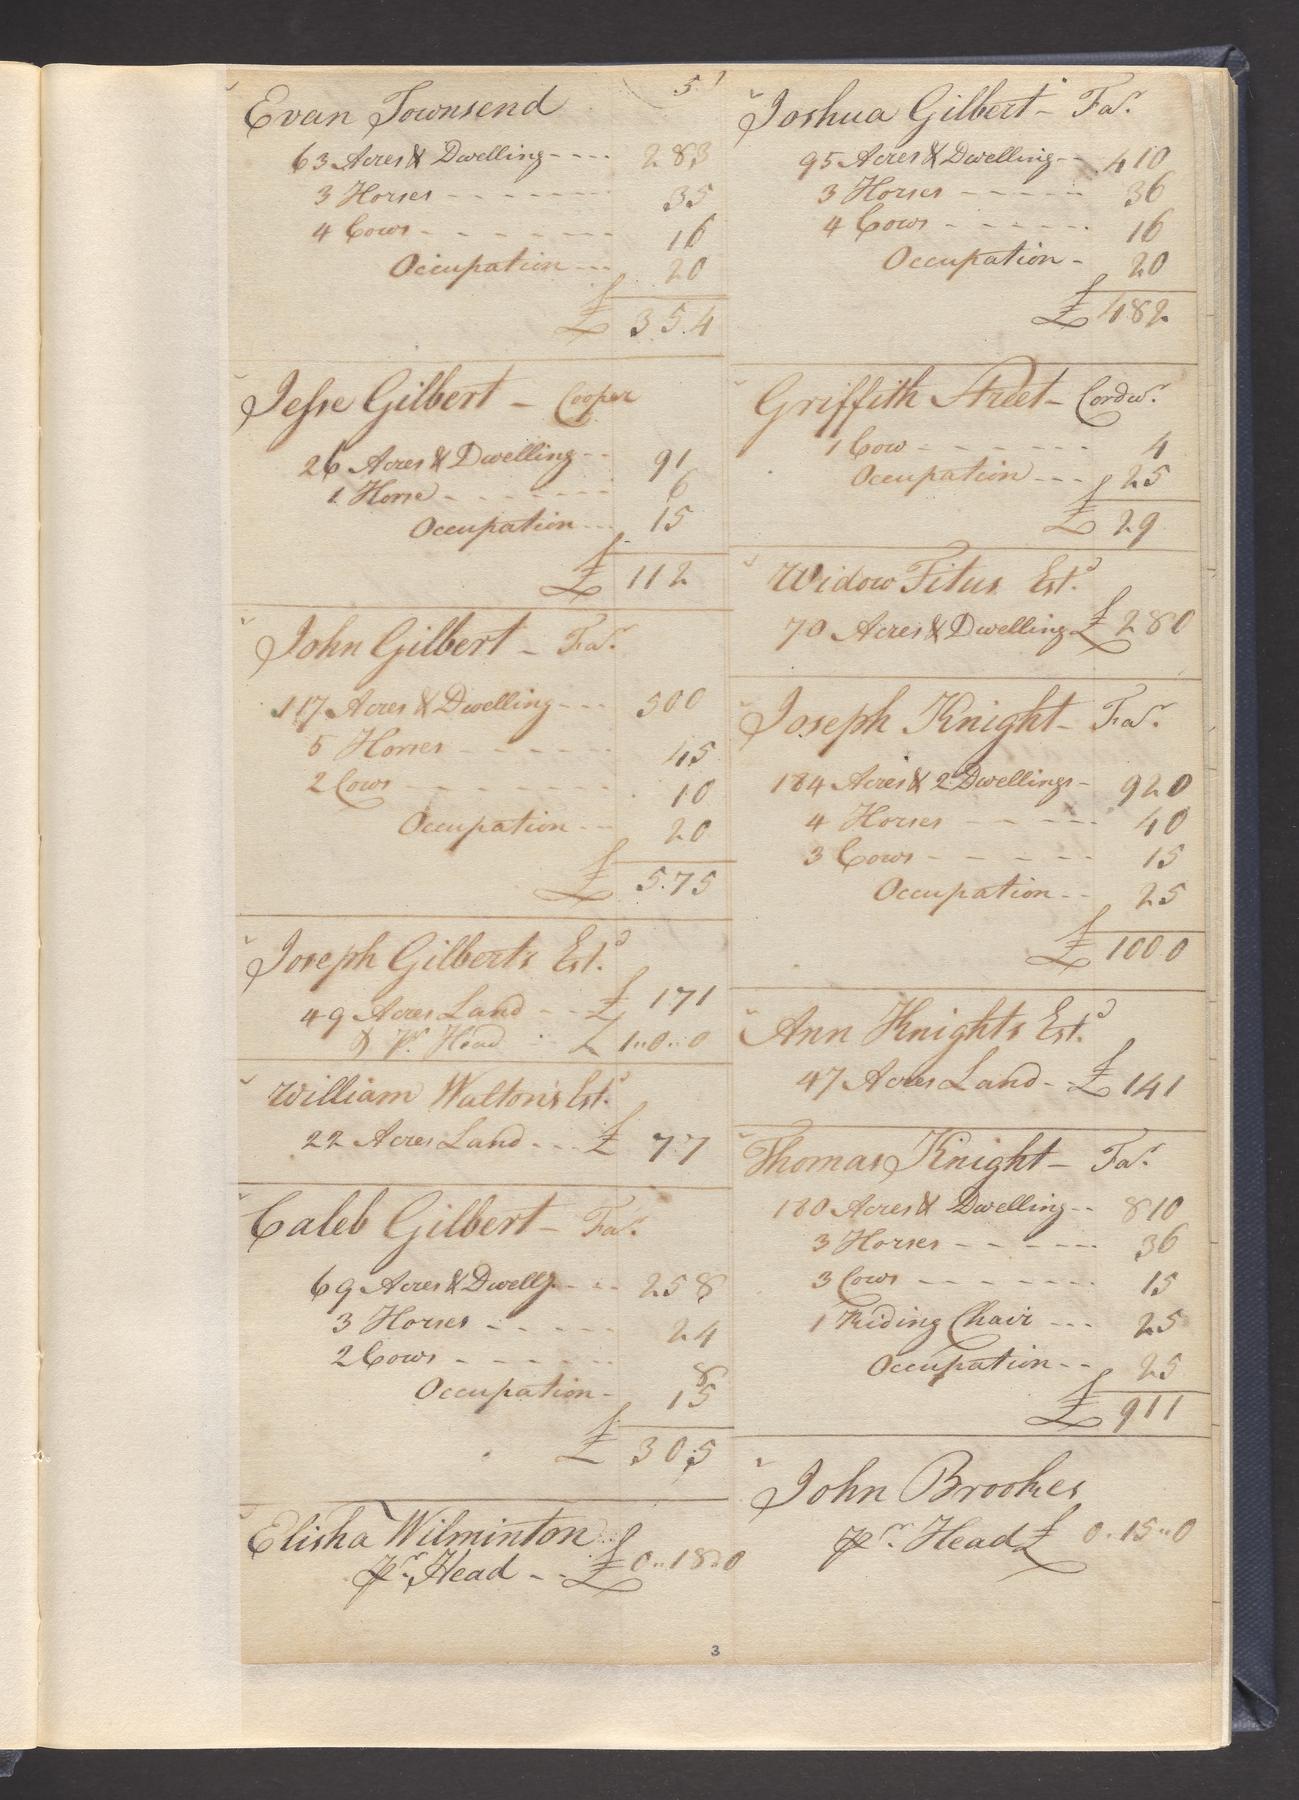 5
Evan Townsend
63 Acres & Dwelling - - - - 283
3 Horses - - - - - - - 35
4 Cows - - - - - - - - 16
Occupation - - - 20
£ 354
Jesse Gilbert - Cooper
26 Acres & Dwelling - - 91
1 Horse - - - - - - - 6
Occupation - - - 15
£ 112
John Gilbert - Far.
117 Acres & Dwelling - - - 500
5 Horses - - - - - - 45
2 Cows - - - - - - - - 10
Occupation - - - 20
£ 575
Joseph Gilberts Estd.
49 Acres Land - - £ 171
& Pr. Head - £ 1..0..0
William Walton's Estd.
22 Acres Land - - - £ 77
Caleb Gilbert - Far.
69 Acres & Dwellg. - - - 258
3 Horses - - - - - 24
2 Cows - - - - - - 8
Occupation - 15
£ 305
Elisha Wilminton
pr. Head - - £ 0..18..0
Joshua Gilbert - Far.
95 Acres & Dwelling - - 410
3 Horses - - - - - - 36
4 Cows - - - - - - 16
Occupation - 20
£ 482
Griffith Street - Cordwr.
1 Cow - - - - - - - 4
Occupation - - - 25
£ 29
Widow Titus Estd.
70 Acres & Dwelling £ 280
Joseph Knight - Far.
184 Acres & 2 Dwellings - 920
4 Horses - - - - - - 40
3 Cows - - - - - - 15
Occupation - - 25
£ 1000
Ann Knights Estd.
47 Acres Land - £ 141
Thomas Knight - Far.
180 Acres & Dwelling - - 810
3 Horses - - - - - - - 36
3 Cows - - - - - - - - 15
1 Riding Chair - - - 25
Occupation - - 25
£ 911
John Brookes
pr. Head £ 0..15..0
3